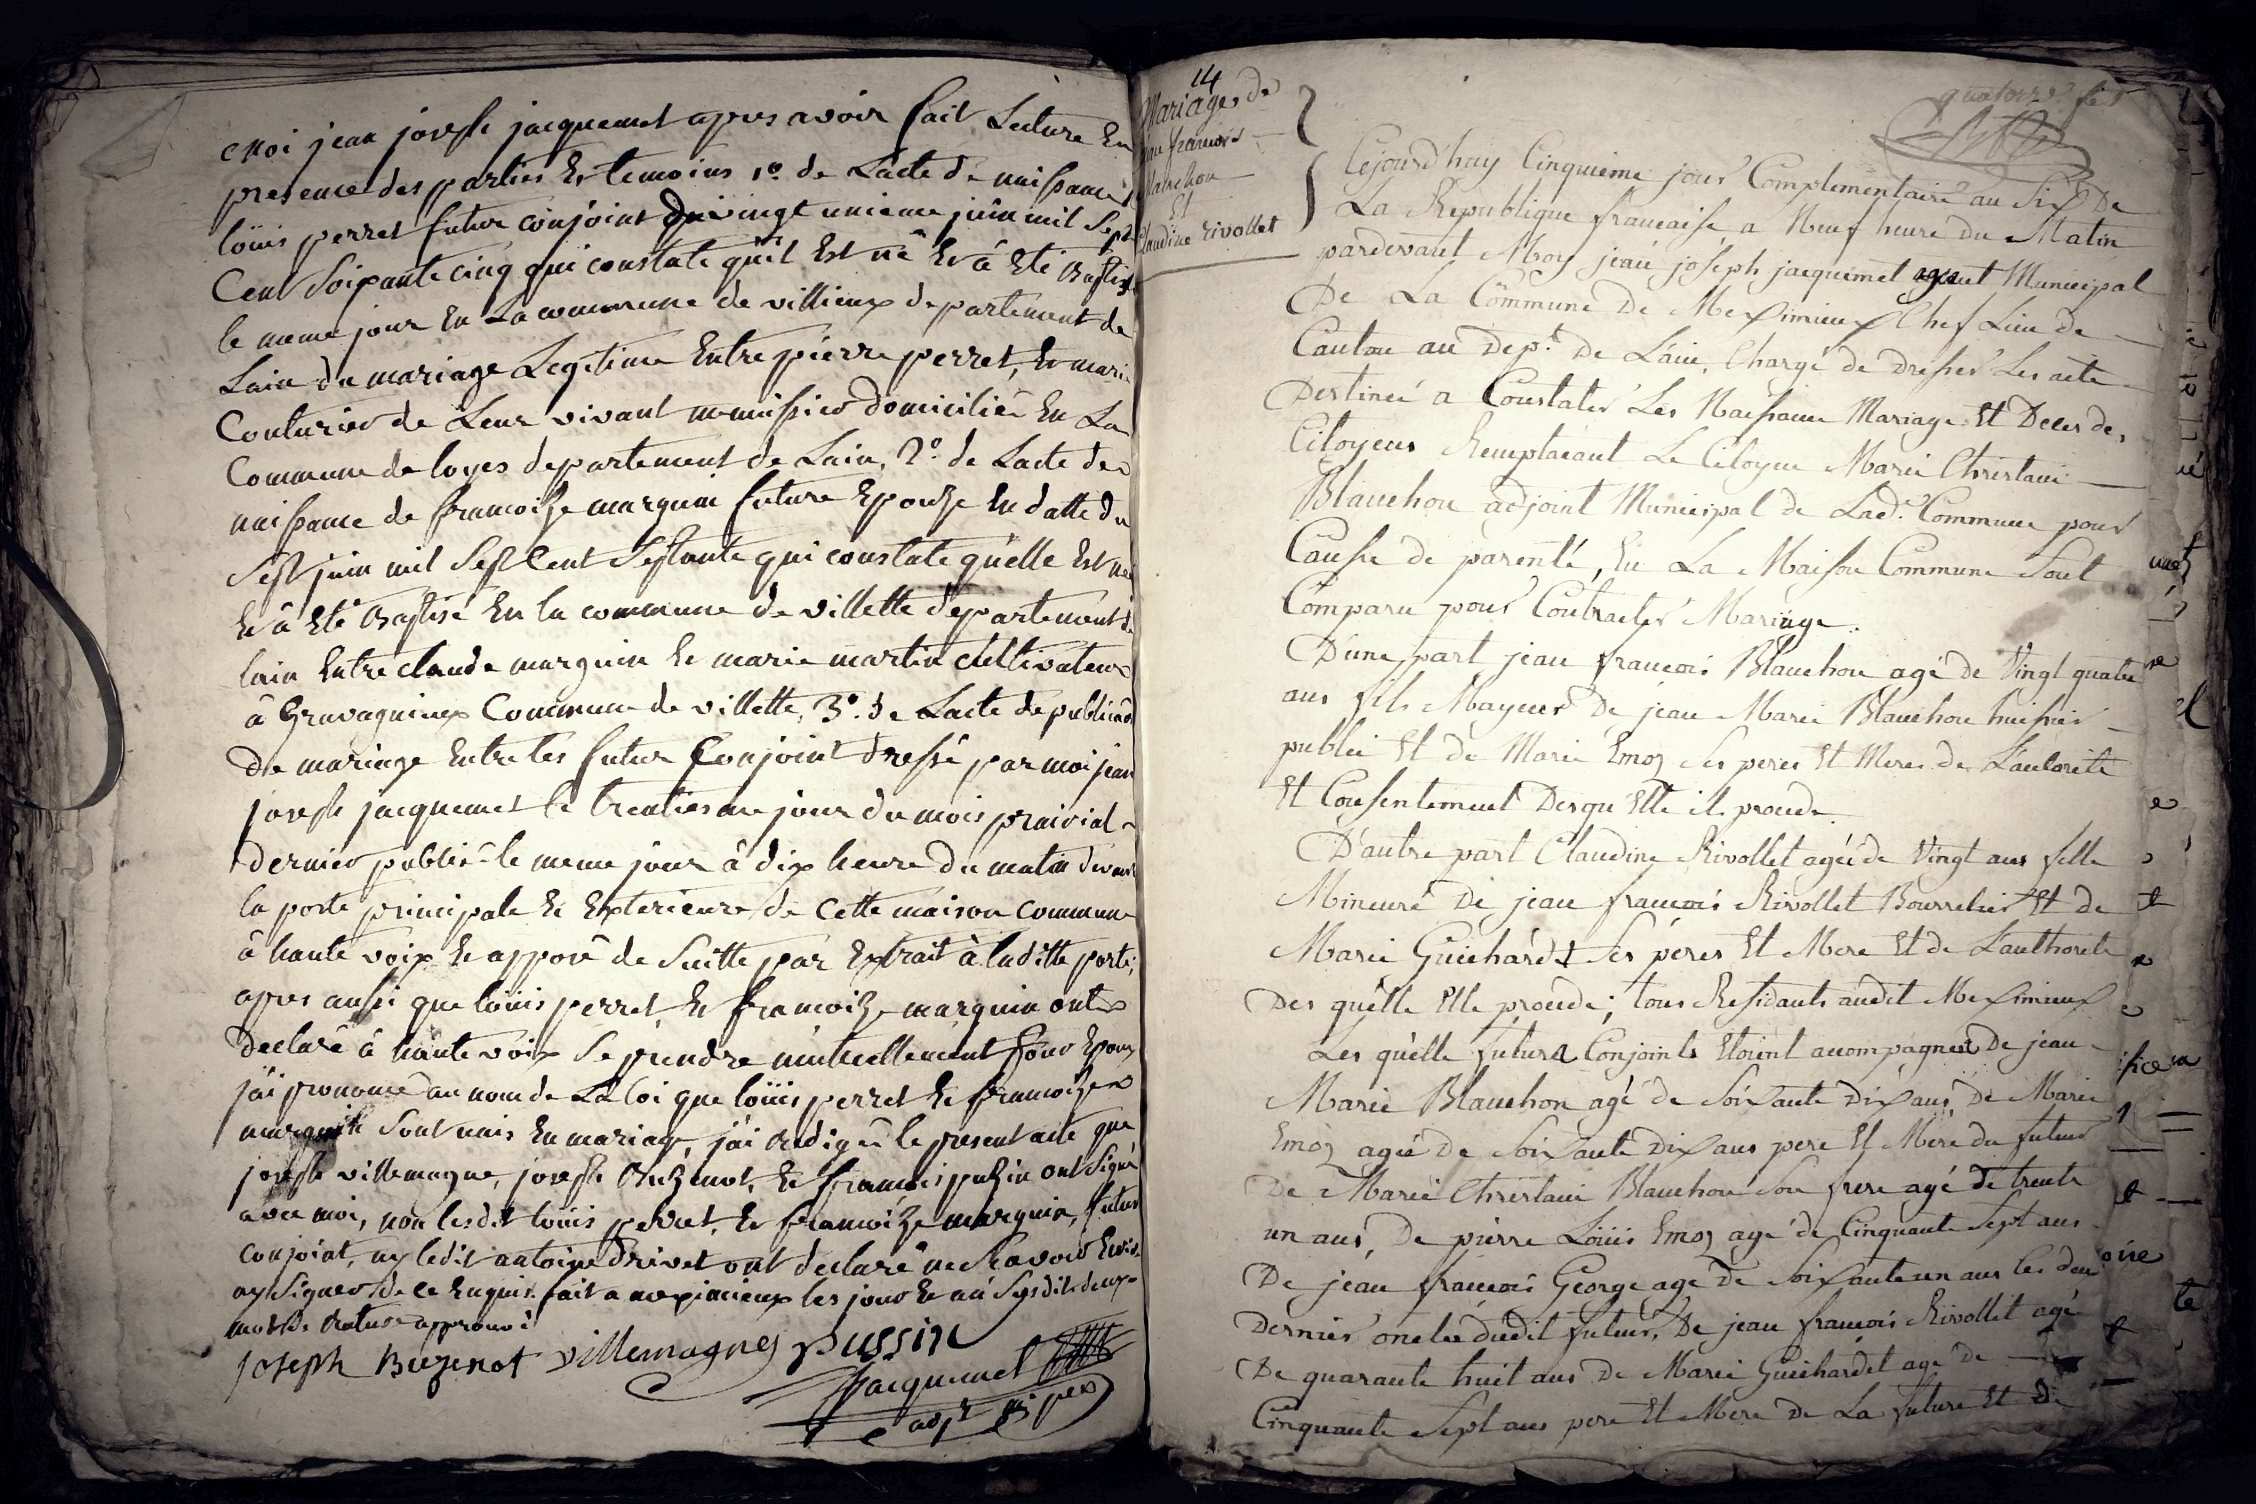 moi jean joseph jacquemet apres avoir fait Lecture En
presence des parties Et temoins 1º. de Lacte de naissance
loüis perret futur conjoint du vingt unieme juin mil Sept
Cent Soixante cinq qui constate quil Est né Et â Eté Baptisé
le meme jour En La commune de villieux departement de
Lain du mariage Legitime Entre pierre perret, Et marie
Couturier de Leur vivant domicilié En La
Commune de loyes departement de Lain, 2º. de Lacte de
naissance de francoise marguin future Epouze En datte du
Sept juin mil Sept Cent Septante qui constate qu'elle Est née
Et â Eté Baptisé En la commune de villette departement de
lain Entre claude marguin Et marie martin cultivateur
â Gravagnieux Commune de villette, 3º. de Lacte de publication
de mariage Entre les futur Conjoint dressé par moi jean
joseph jacquemet le trentiesme jour du mois prairial
dernier publié le meme jour â dix heure du matin devant
la porte principale Et Exterieure de cette maison commune
â haute voix Et apposé de Suitte par Extrait â laditte porte,
apres aussi que loüis perret Et francoize marguin ont
declaré â haute voix Se prendre mutuellement pour Epoux
j'ai prononcé au nom de La Loi que loüis perret Et francoize
marguin Sont unis En mariage, j'ai redigé le present acte que
joseph villemagne, joseph Buzenot, Et francois puzin ont Signé
avec moi, non lesdit loüis perret, Et francoize marguin, futur
conjoint, ny ledit antoine drivet ont declaré ne Scavoir Ecrire
ny Signer de ce Enquis. fait a meximieux les jour Et an Susdit deux
mot de rature approuvé
joseph Buzenot villemagne pussin
Jacquemet
14
Mariages de
jean francois
Blanchon
Et
Claudine rivollet
quatorze
Cejourd'huy Cinquieme jour Complementaire an Six De
La Republique francaise, a Neuf heure du Matin
pardevant Moy jean joseph jacquemet agent Municipal
De La Commune De Meximieux Chef Lieu de
Canton au Dept. De L'ain, Chargé de Dresser Les acte
Destineé a Constater Les Naissance Mariage Et Deces des
Citoyens Remplacant Le Citoyen Marie Christani
Blanchon adjoint Municipal de Lade. Commune pour
Cause de parenté, En La Maison Commune Sont
Comparu pour Contracter Mariage.
D'une part jean francois Blanchon agé de Vingt quatre
ans fils Mayeur De jean Marie Blanchon huissier
public Et de Marie Emoz Ses peres Et Meres de L'autorité
Et Consentement Desqu'Elle il procede
D'autre part Claudine Rivollet ageé de Vingt ans fille
Mineure De jean francois Rivollet Bourrelier Et de
Marie Guichardet Ses peres Et Mere Et de L'authorité
Des qu'elle Elle procede; tous Residants audit Meximieux
Les qu'elle futurs Conjoints Etoint accompagnés De jean
Marie Blanchon agé de Soixante Dix ans, De Marie
Emoz ageé De Soixante Dix ans pere Et Mere du futur
De Marie Christani Blanchon Son frere agé de trente
un ans, De pierre Loüis Emoz agé de Cinquante Sept ans
De jean francois George agé De Soixante un ans les deux
Dernier oncle dudit futur, De jean francois Rivollet agé
De quarante huit ans De Marie Guichardet agé De
Cinquante Sept ans pere Et Mere De La future Et De